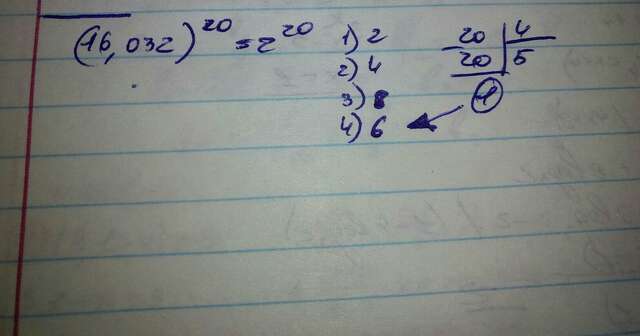 (16,032)²⁰ = 2²⁰
1) 2
2) 4
3) 8
4) 6
20 | 4
20 | 5